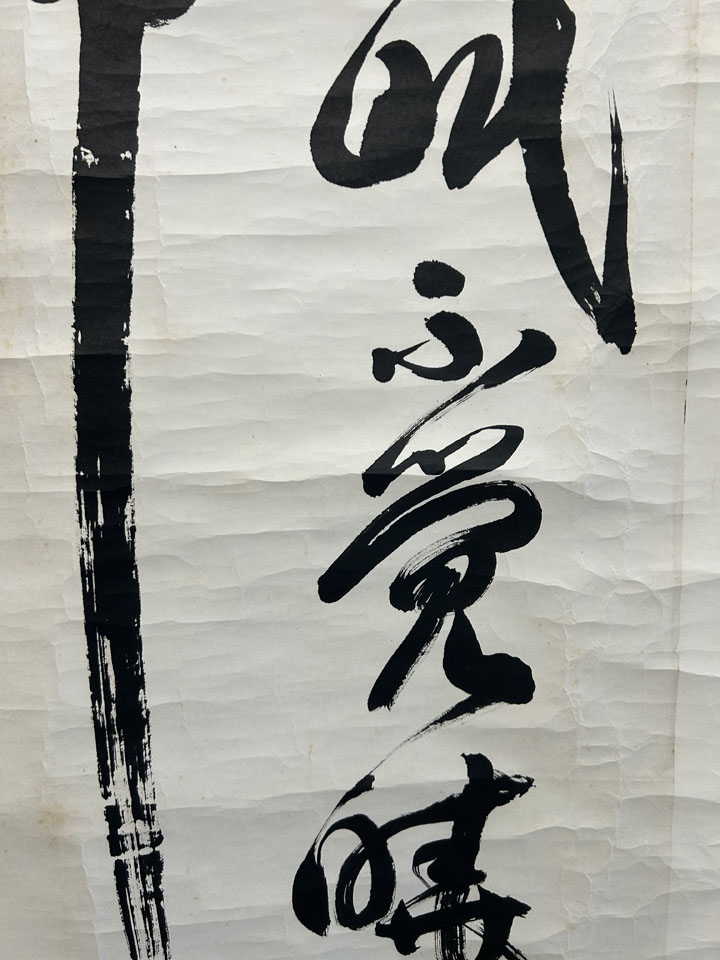 眠不覺曉